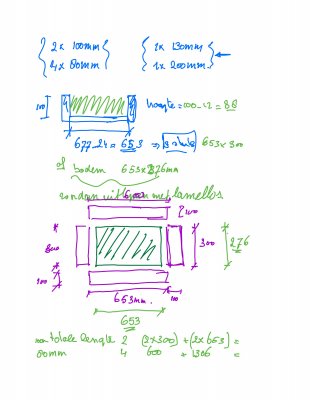 2x 100mm
4x 80mm
1x 130mm
1x 200mm
100
hoogte = 100-12 = 88
677-24 = 653 => 3 stuks 653 x 300
of bodem 653 x 276mm
zonder uitfrezen met lamellos
100
300
300
276
100
653mm.
100
653
totale lengte 2 (2x300) + (2x653) =
80mm 4 600 + 1306 =